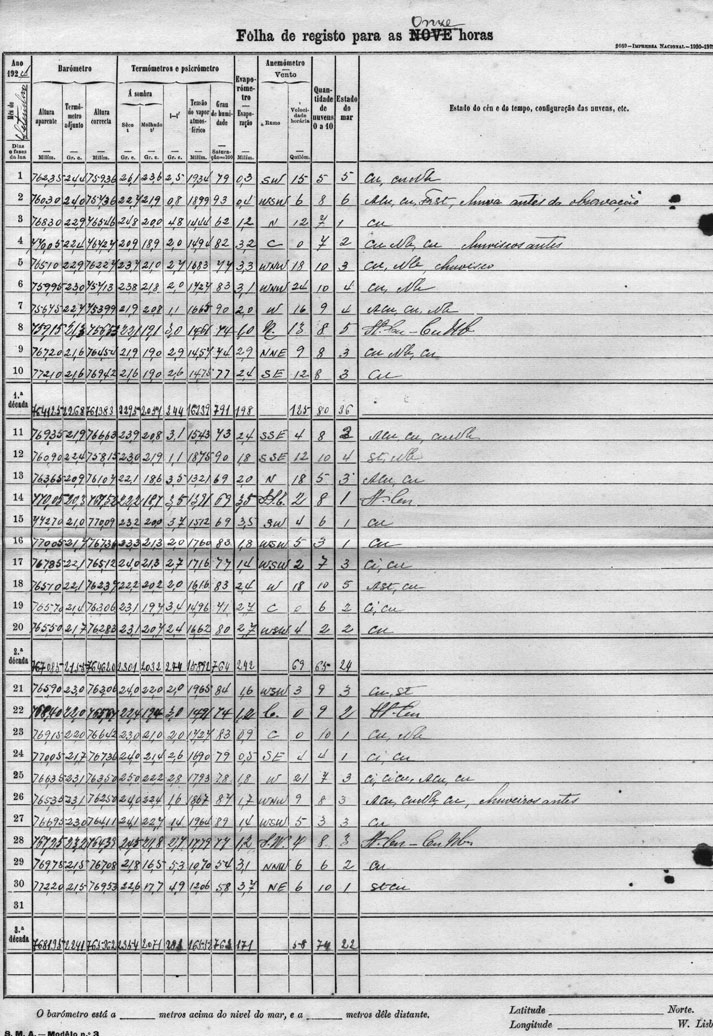 Folha de registo para as NOVE Onze horas
2069—IMPRENSA NACIONAL—1920-192
Ano 192
Mês de Setembro
Dias e fases da lua
Barómetro
Altura aparente Milím.
Termómetro adjunto Gr. c.
Altura correcta Milím.
Termómetros e psicrómetro
Á sombra
Sêco t Gr. c.
Molhado t' Gr. c.
t—t' Gr. c.
Tensão do vapor atmosférico Milím.
Grau de humidade Saturação=100
Evaporómetro
Evaporação Milím.
Anemómetro
Vento
Rumo
Velocidade horária Quilóm.
Quantidade de nuvens 0 a 10
Estado do mar
Estado do céu e do tempo, configuração das nuvens, etc.
1 76235 244 75936 261 236 25 1934 79 0,3 SW 15 5 5 Cu, cuNb
2 76030 240 75736 227 219 08 1899 93 0,4 WSW 6 8 6 Acu, cu, Frst, chuva antes da observação
3 76830 229 76546 248 200 48 1444 62 1,2 N 12 7 1 cu
4 224 209 189 2,0 1494 82 3,2 C 0 7 2 Cu Nb, cu chuviscos antes
5 76510 229 76227 237 210 27 1683 77 3,3 WNW 18 10 3 cu, Nb, chuvisco
6 75995 230 75713 238 218 2,0 1727 83 3,1 WNW 24 10 4 cu, Nb
7 75675 227 75399 219 208 1,1 1665 90 2,0 W 16 9 4 Acu, cu, Nb
8 75915 213 221 191 3,0 74 N 13 8 5 St-Cu - CuNb
9 76720 216 76454 219 190 2,9 1457 74 2,9 NNE 9 8 3 cu Nb, cu
10 77210 216 76942 216 190 2,6 1475 77 2,4 SE 12 8 3 cu
1.ª década 2268 761383 2295 2051 244 16239 791 198 125 80 36
11 76935 219 76663 239 208 3,1 1543 73 2,4 SSE 4 8 2 Acu, cu, cuNb
12 76090 224 75815 230 219 1,1 1875 90 1,8 SSE 12 10 4 St, Nb
13 76365 209 76107 221 186 3,5 1321 69 2,0 N 18 5 3 Acu, cu
14 77005 203 222 187 3,5 69 3,5 2 8 1 St-Cu
15 77270 210 77009 232 200 3,7 1512 69 3,5 SW 4 6 1 cu
16 77005 217 76736 233 213 2,0 1760 83 1,8 WSW 5 3 1 cu
17 76785 221 76512 240 213 2,7 1716 77 1,4 WSW 2 7 3 ci, cu
18 76510 221 76237 222 202 2,0 1616 83 2,4 W 18 10 5 Ast, cu
19 76570 214 76306 231 197 3,4 1496 71 2,7 C 0 6 2 Ci, cu
20 76550 217 76283 231 207 2,4 1662 80 2,7 WSW 4 2 2 cu
2.ª década 767085 2155 764620 2301 2032 274 764 242 69 65 24
21 76590 230 76306 240 220 2,0 1965 84 1,6 WSW 3 9 3 cu, st
22 220 224 194 3,0 74 1,2 C. 0 9 2 St-Cu
23 76915 220 76642 230 210 2,0 1727 83 0,9 C 0 10 1 Cu, Nb
24 77005 217 76736 240 214 2,6 1690 79 0,5 SE 4 4 1 Ci, cu
25 76635 231 76350 250 222 2,8 1793 78 1,8 W 21 7 3 Ci, cicu, Acu, cu
26 76535 231 76250 240 224 1,6 1867 87 1,7 WNW 9 8 3 Acu, cuNb, cu, chuveiros antes
27 76695 230 76411 241 227 1,4 1964 89 1,4 WSW 5 3 3 cu
28 76725 232 76439 245 218 2,7 1779 77 1,2 S.W 4 8 3 St-Cu - CuNb
29 76975 215 76708 218 165 5,3 1070 54 3,1 NNW 6 6 2 cu
30 77220 215 76953 226 177 4,9 1206 58 3,7 NE 6 10 1 stcu
31
3.ª década 768195 2241 2354 2071 171 58 74 22
O barómetro está a metros acima do nivel do mar, e a metros dêle distante.
Latitude Norte.
Longitude W. Lisb
S. M. A. — Modêlo n.º 3